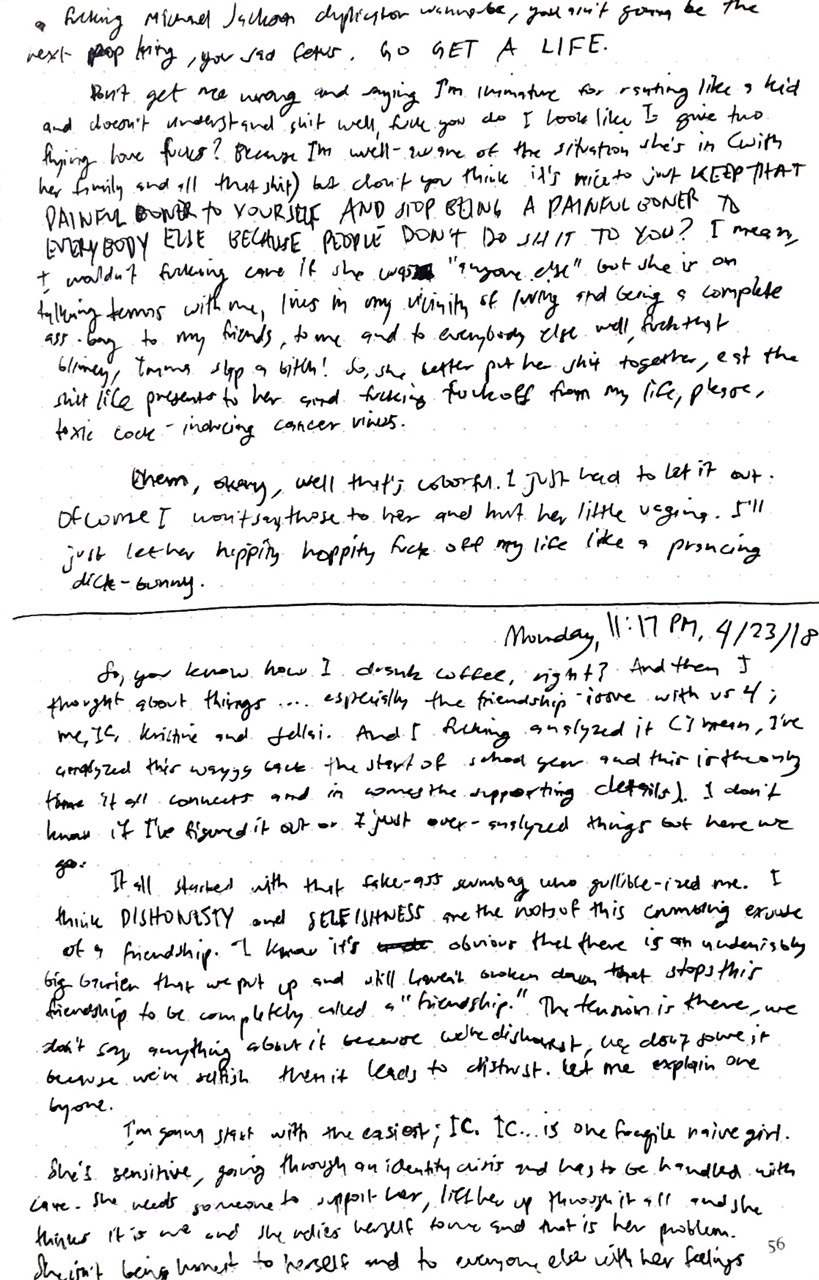 a fucking Michael Jackson duplicator wannabe, you ain't gonna be the
next pop king, you sad fetus. GO GET A LIFE.
Don't get me wrong and saying I'm immature for ranting like a kid
and doesn't understand shit well, fuck you do I look like I give two
flying love fucks? Because I'm well-aware of the situation she's in (with
her family and all that shit) but don't you think it's nice to just KEEP THAT
PAINFUL BONER to YOURSELF AND STOP BEING A PAINFUL BONER TO
EVERYBODY ELSE BECAUSE PEOPLE DON'T DO SHIT TO YOU? I mean,
I wouldn't fucking care if she was "anyone else" but she is on
talking terms with me, lives in my vicinity of living and being a complete
ass-bag to my friends, to me and to everybody else well, fuck that
blimey, Imma slap a bitch! So, she better put her shit together, eat the
shit life presents to her and fucking fuck off from my life, please,
toxic cock-inducing cancer virus.
Ehem, okay, well that's colorful. I just had to let it out.
Of course I won't say those to her and hurt her little vagina. I'll
just let her hippity hoppity fuck off my life like a prancing
dick-bunny.
Monday, 11:17 PM, 4/23/18
So, you know how I drank coffee, right? And then I
thought about things .... especially the friendship issue with us 4;
me, IC, Kristine and Jellai. And I fucking analyzed it (I mean, I've
analyzed this wayyy back the start of school year and this is the only
time it all connects and in comes the supporting details). I don't
know if I've figured it out or I just over-analyzed things but here we
go:
It all started with that fake-ass scumbag who gullible-ized me. I
think DISHONESTY and SELFISHNESS are the roots of this crumbling excuse
of a friendship. I know it's obvious that there is an undeniably
big barrier that we put up and still haven't broken down that stops this
friendship to be completely called a "friendship." The tension is there, we
don't say anything about it because we're dishonest, we don't solve it
because we're selfish then it leads to distrust. Let me explain one
by one.
I'm gonna start with the easiest; IC. IC... is one fragile naive girl.
She's sensitive, going through an identity crisis and has to be handled with
care. She needs someone to support her, lift her up through it all and she
thinks it is me and she relies herself to me and that is her problem.
She isn't being honest to herself and to everyone else with her feelings
56